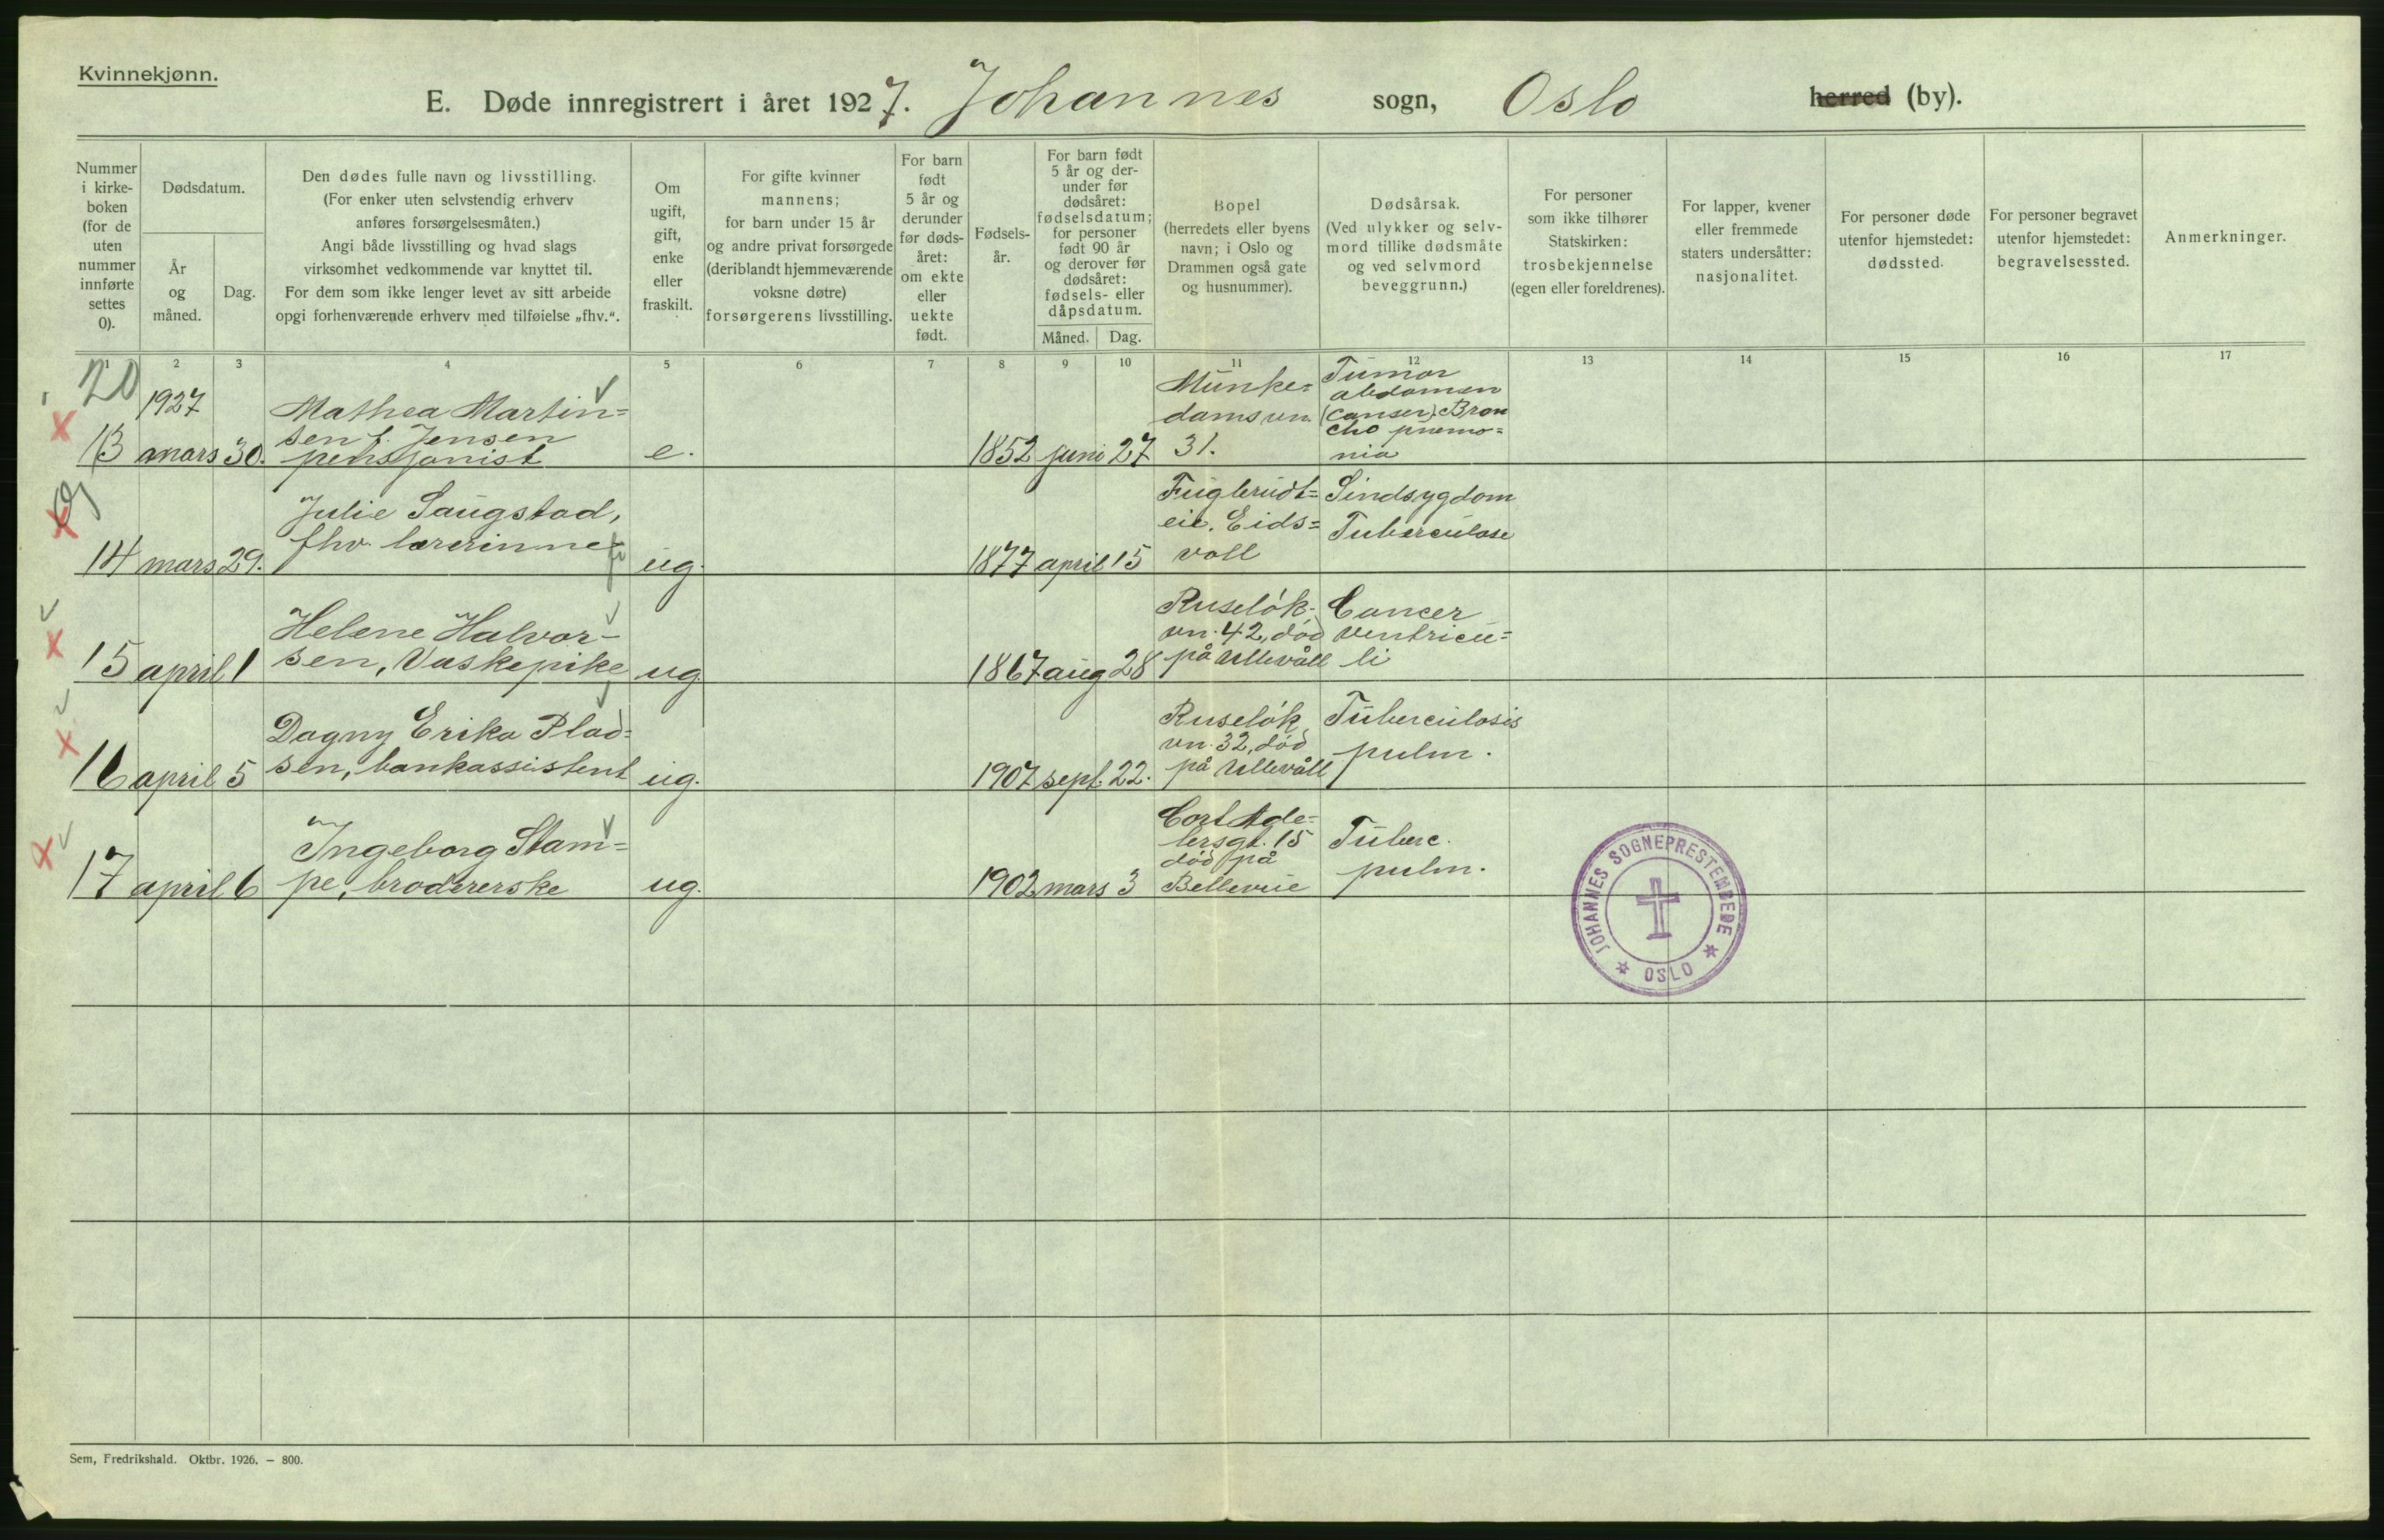 Kvinnekjønn.
E. Døde innregistrert i året 1927. Johannes sogn, Oslo herred (by).
Nummer
i kirke-
boken
(for de
uten
nummer
innførte
settes
0).
Dødsdatum.
År
og
måned.
Dag.
Den dødes fulle navn og livsstilling.
(For enker uten selvstendig erhverv
anføres forsørgelsesmåten.)
Angi både livsstilling og hvad slags
virksomhet vedkommende var knyttet til.
For dem som ikke lenger levet av sitt arbeide
opgi forhenværende erhverv med tilføielse „fhv.“.
Om
ugift,
gift,
enke
eller
fraskilt.
For gifte kvinner
mannens;
for barn under 15 år
og andre privat forsørgede
(deriblandt hjemmeværende
voksne døtre)
forsørgerens livsstilling.
For barn
født
5 år og
derunder
før døds-
året:
om ekte
eller
uekte
født.
Fødsels-
år.
For barn født
5 år og der-
under før
dødsåret:
fødselsdatum;
for personer
født 90 år
og derover før
dødsåret:
fødsels- eller
dåpsdatum.
Måned. Dag.
Bopel
(herredets eller byens
navn; i Oslo og
Drammen også gate
og husnummer).
Dødsårsak.
(Ved ulykker og selv-
mord tillike dødsmåte
og ved selvmord
beveggrunn.)
For personer
som ikke tilhører
Statskirken:
trosbekjennelse
(egen eller foreldrenes).
For lapper, kvener
eller fremmede
staters undersåtter:
nasjonalitet.
For personer døde
utenfor hjemstedet:
dødssted.
For personer begravet
utenfor hjemstedet:
begravelsessted.
Anmerkninger.
1 2 3 4 5 6 7 8 9 10 11 12 13 14 15 16 17
20
1927
13 mars 30.
Mathea Martin=
sen f. Jensen
pensjonist
e.
1852 juni 27
Munke=
damsvn.
31.
Tumor
abdomen
(canser). Bron
cho pnemo=
nia
14 mars 29.
Julie Saugstad,
fhv. lærerinne
ug.
1877 april 15
Fuglerudt=
eie. Eids=
voll
Sindsygdom
Tuberculose
15 april 1
Helene Halvor-
sen, Vaskepike
ug
1867 aug 28
Ruseløk-
vn. 42, død
på Ullevåll
Cancer
ventricu=
li
16 april 5
Dagny Erika Plad=
sen, bankassistent
ug.
1907 sept. 22.
Ruseløk
vn. 32, død
på Ullevåll
Tuberculosis
pulm.
17 april 6
Ingeborg Stam=
pe, brodererske
ug.
1902 mars 3
Cort Ade=
lersgt. 15
død på
Bellevue
Tuberc.
pulm.
JOHANNES SOGNEPRESTEMBEDE
OSLO
Sem, Fredrikshald. Oktbr. 1926. — 800.